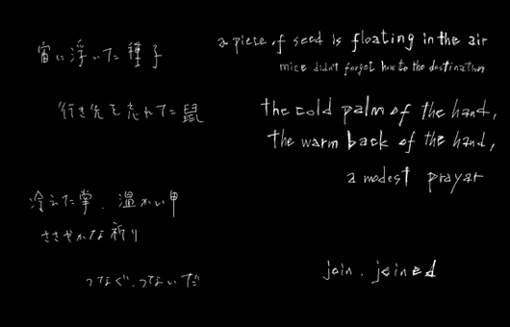 宙に浮いた種子
a piece of seed is floating in the air
mice didn't forget how to the destination
行き先を忘れてた鼠
the cold palm of the hand,
the warm back of the hand,
a modest prayar
冷えた掌、温かい甲
ささやかな祈り
つなぐ、つないだ
join . joined